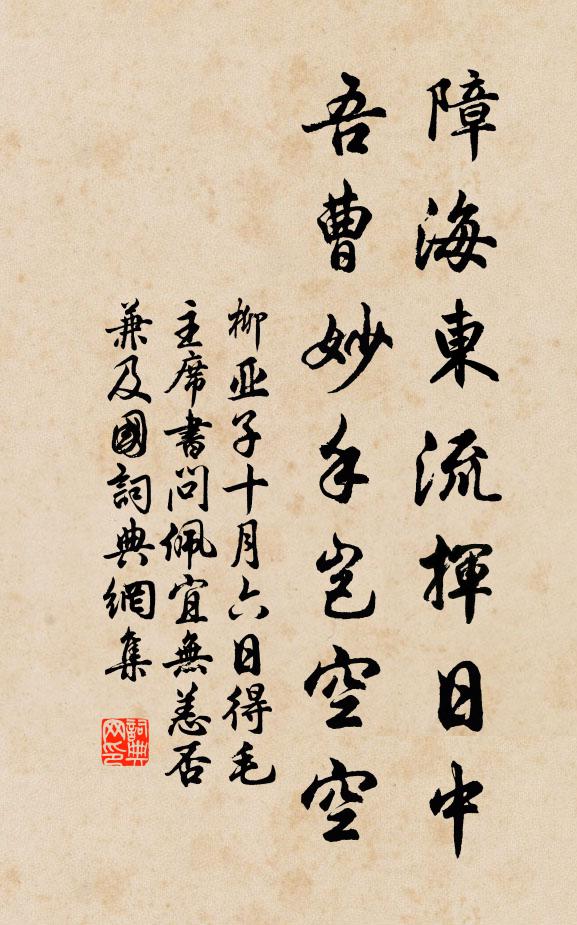 障海東流揮日中
吾曹妙手豈空空
柳亚子十月六日得毛
主席書問佩宜無恙否
兼及國詞典網集
詞典网印